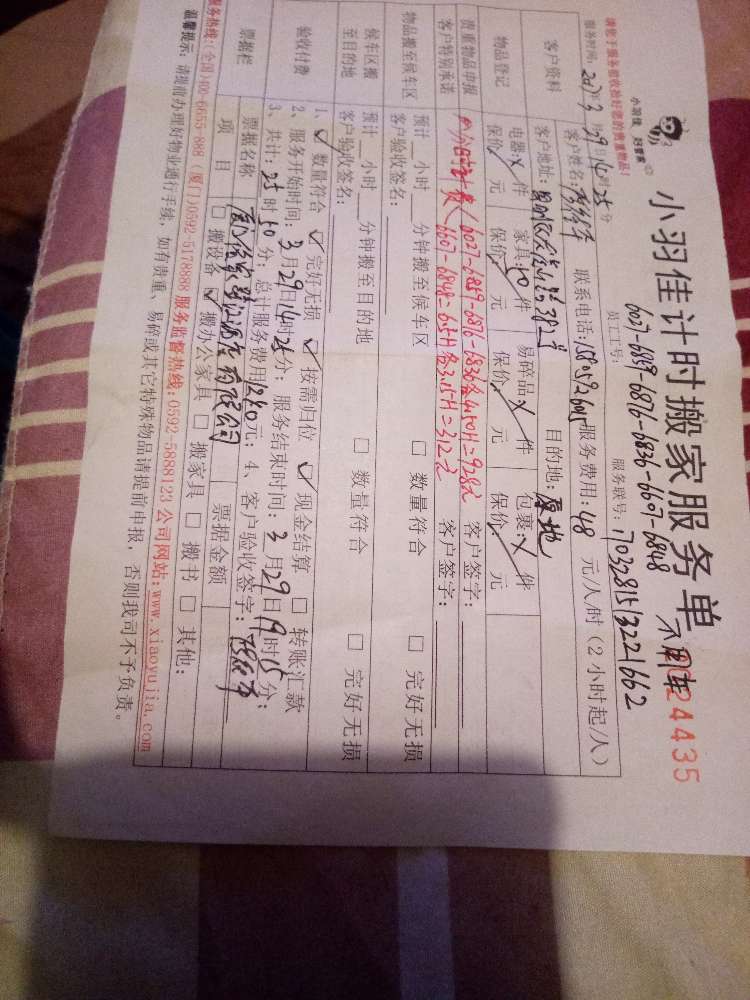 小羽佳计时搬家服务单
不用车
0024435
小羽佳 好管家
请您于服务前收拾好您的贵重物品！
员工工号：6027-6859-6876-6836-6607-6848
服务联号：1703281513221662
服务时间：2017年3月29日14时25分
客户资料
客户姓名： 联系电话： 服务费用：48元/人/时（2小时起/人）
客户地址： 目的地：原地
物品登记
电器：X件 家具：10件 易碎品：X件 包裹：X件
保价 元 保价 元 保价 元 保价： 元
贵重物品申报
客户签字：
6027-6859-6876-6836各 =928元
客户特别承诺
客户签字：
6607-6848= 各3.25H=312元
物品搬至候车区
预计__小时__分钟搬至候车区 □ 数量符合 □ 完好无损
客户验收签名：
候车区搬至目的地
预计__小时__分钟搬至目的地 □ 数量符合 □ 完好无损
客户验收签名：
验收付费
1、☑ 数量符合 ☑ 完好无损 ☑ 按需归位 ☑ 现金结算 □ 转账汇款
2、服务开始时间：3月29日14时25分；服务结束时间：3月29日19时15分；
3、共计：25时 分；总计服务费用1240元；4、客户验收签字：
票据栏
票据名称 有限公司 票据金额
项 目 □ 搬设备 ☑ 搬办公家具 □ 搬家具 □ 搬书 □ 其他：
服务热线：(全国)400-6655-688 (厦门)0592-5178888 服务监督热线：0592-5888123 公司网站：www.xiaoyujia.com
温馨提示：请提前办理好物业通行手续，如有贵重、易碎或其它特殊物品请提前申报，否则我司不予负责。